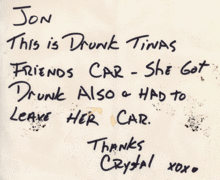 JON
THIS IS DRUNK TINAS
FRIENDS CAR - SHE GOT
DRUNK ALSO & HAD TO
LEAVE HER CAR.
THANKS
CRYSTAL xoxo